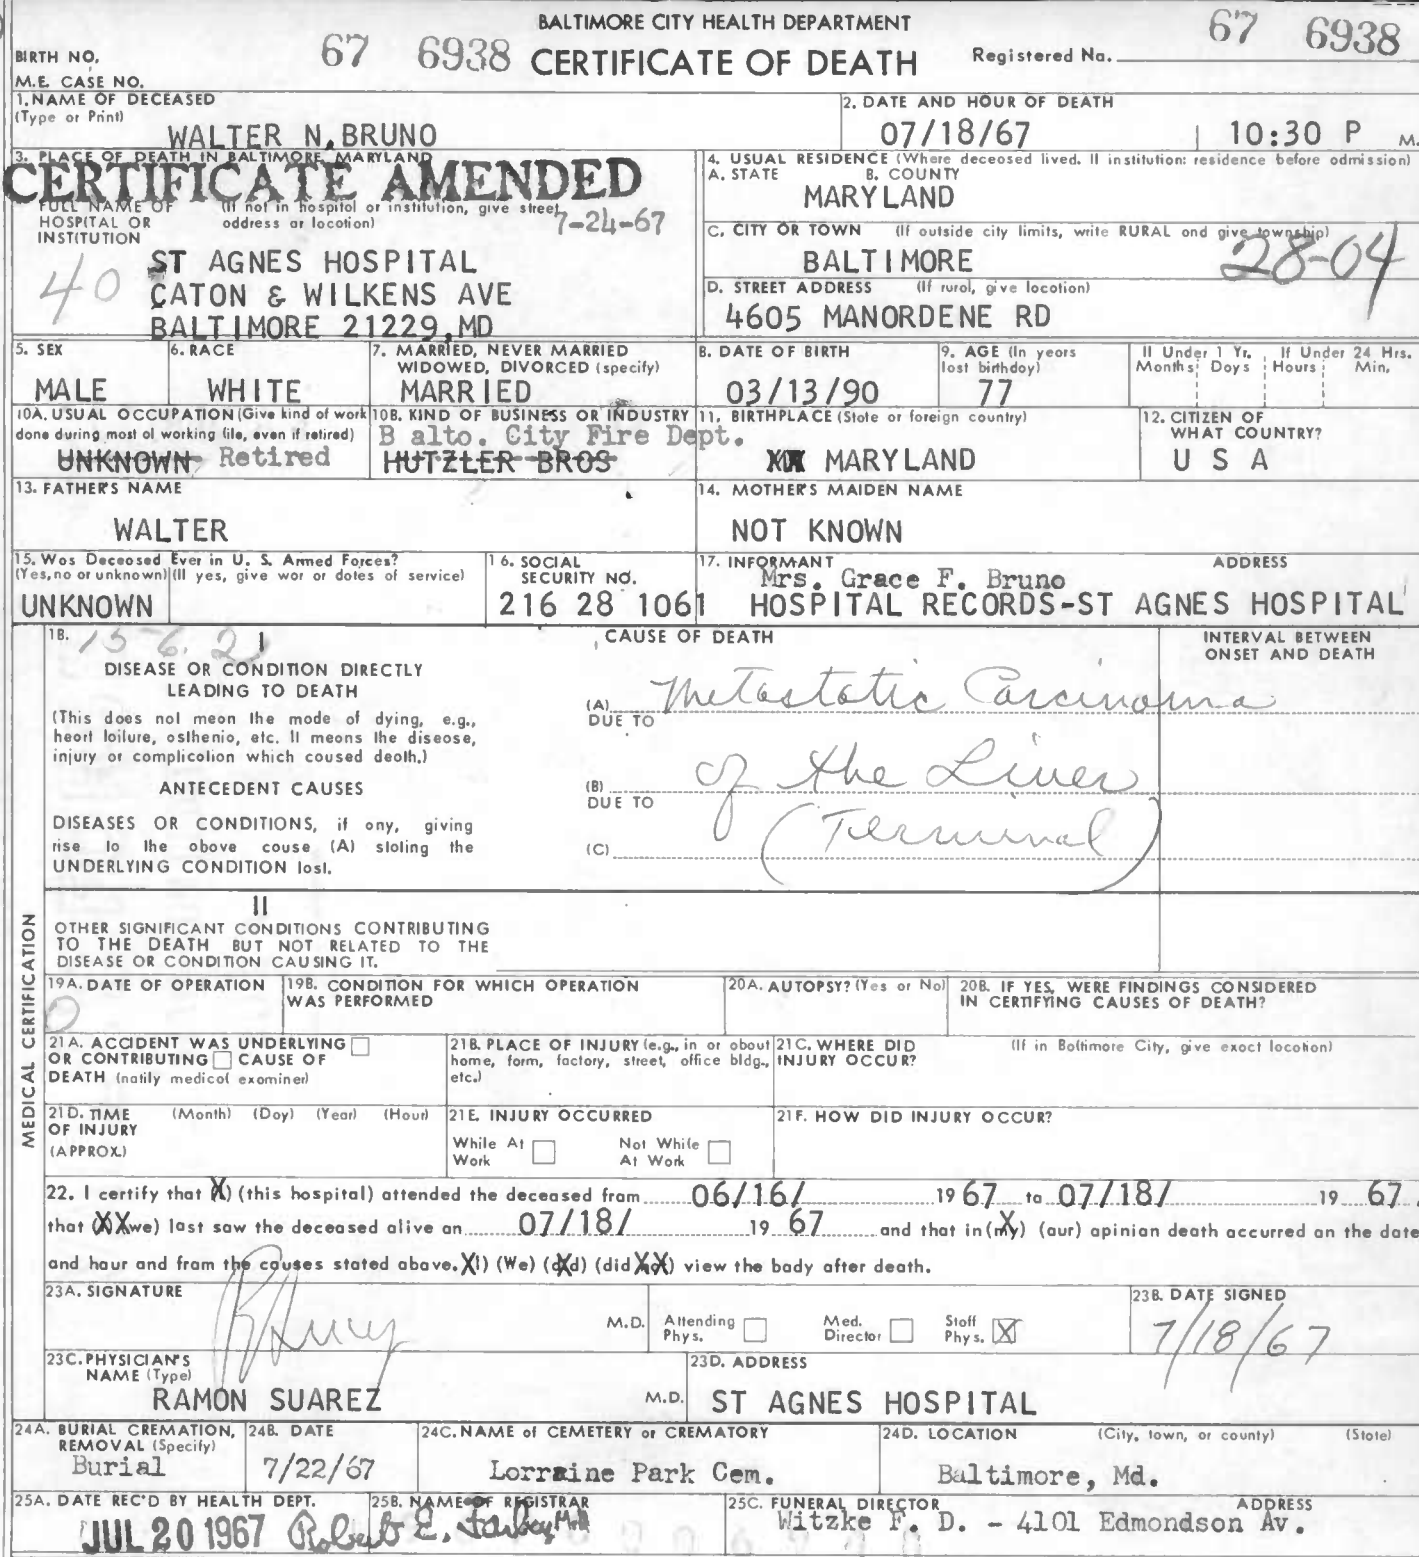 BALTIMORE CITY HEALTH DEPARTMENT
CERTIFICATE OF DEATH
67 6938
Registered No. 67 6938
BIRTH NO.
M.E. CASE NO.
1. NAME OF DECEASED
(Type or Print)
WALTER N. BRUNO
2. DATE AND HOUR OF DEATH
07/18/67 10:30 P M.
3. PLACE OF DEATH IN BALTIMORE, MARYLAND
CERTIFICATE AMENDED
7-24-67
FULL NAME OF HOSPITAL OR INSTITUTION
(If not in hospital or institution, give street address or location)
40
ST AGNES HOSPITAL
CATON & WILKENS AVE
BALTIMORE 21229, MD
4. USUAL RESIDENCE (Where deceased lived. If institution: residence before admission)
A. STATE B. COUNTY
MARYLAND
C. CITY OR TOWN (If outside city limits, write RURAL and give township)
BALTIMORE
28-04
D. STREET ADDRESS (If rural, give location)
4605 MANORDENE RD
5. SEX
MALE
6. RACE
WHITE
7. MARRIED, NEVER MARRIED WIDOWED, DIVORCED (specify)
MARRIED
8. DATE OF BIRTH
03/13/90
9. AGE (In years last birthday)
77
If Under 1 Yr. Months Days
If Under 24 Hrs. Hours Min.
10A. USUAL OCCUPATION (Give kind of work done during most of working life, even if retired)
UNKNOWN Retired
10B. KIND OF BUSINESS OR INDUSTRY
B alto. City Fire Dept.
HUTZLER BROS
11. BIRTHPLACE (State or foreign country)
MARYLAND
12. CITIZEN OF WHAT COUNTRY?
U S A
13. FATHER'S NAME
WALTER
14. MOTHER'S MAIDEN NAME
NOT KNOWN
15. Was Deceased Ever in U. S. Armed Forces?
(Yes, no or unknown) (If yes, give war or dates of service)
UNKNOWN
16. SOCIAL SECURITY NO.
216 28 1061
17. INFORMANT ADDRESS
Mrs. Grace F. Bruno
HOSPITAL RECORDS-ST AGNES HOSPITAL
MEDICAL CERTIFICATION
18. 156.2
I
DISEASE OR CONDITION DIRECTLY
LEADING TO DEATH
(This does not mean the mode of dying, e.g.,
heart failure, asthenia, etc. It means the disease,
injury or complication which caused death.)
ANTECEDENT CAUSES
DISEASES OR CONDITIONS, if any, giving
rise to the above cause (A) stating the
UNDERLYING CONDITION last.
CAUSE OF DEATH
INTERVAL BETWEEN ONSET AND DEATH
(A) Metastatic Carcinoma
DUE TO
(B) of the Liver
DUE TO
(C) (Terminal)
II
OTHER SIGNIFICANT CONDITIONS CONTRIBUTING
TO THE DEATH BUT NOT RELATED TO THE
DISEASE OR CONDITION CAUSING IT.
19A. DATE OF OPERATION
0
19B. CONDITION FOR WHICH OPERATION WAS PERFORMED
20A. AUTOPSY? (Yes or No)
20B. IF YES, WERE FINDINGS CONSIDERED IN CERTIFYING CAUSES OF DEATH?
21A. ACCIDENT WAS UNDERLYING
OR CONTRIBUTING CAUSE OF
DEATH (notify medical examiner)
21B. PLACE OF INJURY (e.g., in or about home, farm, factory, street, office bldg., etc.)
21C. WHERE DID INJURY OCCUR?
(If in Baltimore City, give exact location)
21D. TIME OF INJURY (APPROX.)
(Month) (Day) (Year) (Hour)
21E. INJURY OCCURRED
While At Work
Not While At Work
21F. HOW DID INJURY OCCUR?
22. I certify that (X) (this hospital) attended the deceased from 06/16/ 19 67 to 07/18/ 19 67
that (XXwe) last saw the deceased alive on 07/18/ 19 67 and that in (my) (our) opinion death occurred on the date
and hour and from the causes stated above. XI) (We) (did) (did not) view the body after death.
23A. SIGNATURE
M.D.
Attending Phys.
Med. Director
Staff Phys. X
23B. DATE SIGNED
7/18/67
23C. PHYSICIAN'S NAME (Type)
RAMON SUAREZ M.D.
23D. ADDRESS
ST AGNES HOSPITAL
24A. BURIAL CREMATION, REMOVAL (Specify)
Burial
24B. DATE
7/22/67
24C. NAME of CEMETERY or CREMATORY
Lorraine Park Cem.
24D. LOCATION (City, town, or county) (State)
Baltimore, Md.
25A. DATE REC'D BY HEALTH DEPT.
JUL 20 1967
25B. NAME OF REGISTRAR
Robert E. Farber, M.D.
25C. FUNERAL DIRECTOR ADDRESS
Witzke F. D. - 4101 Edmondson Av.